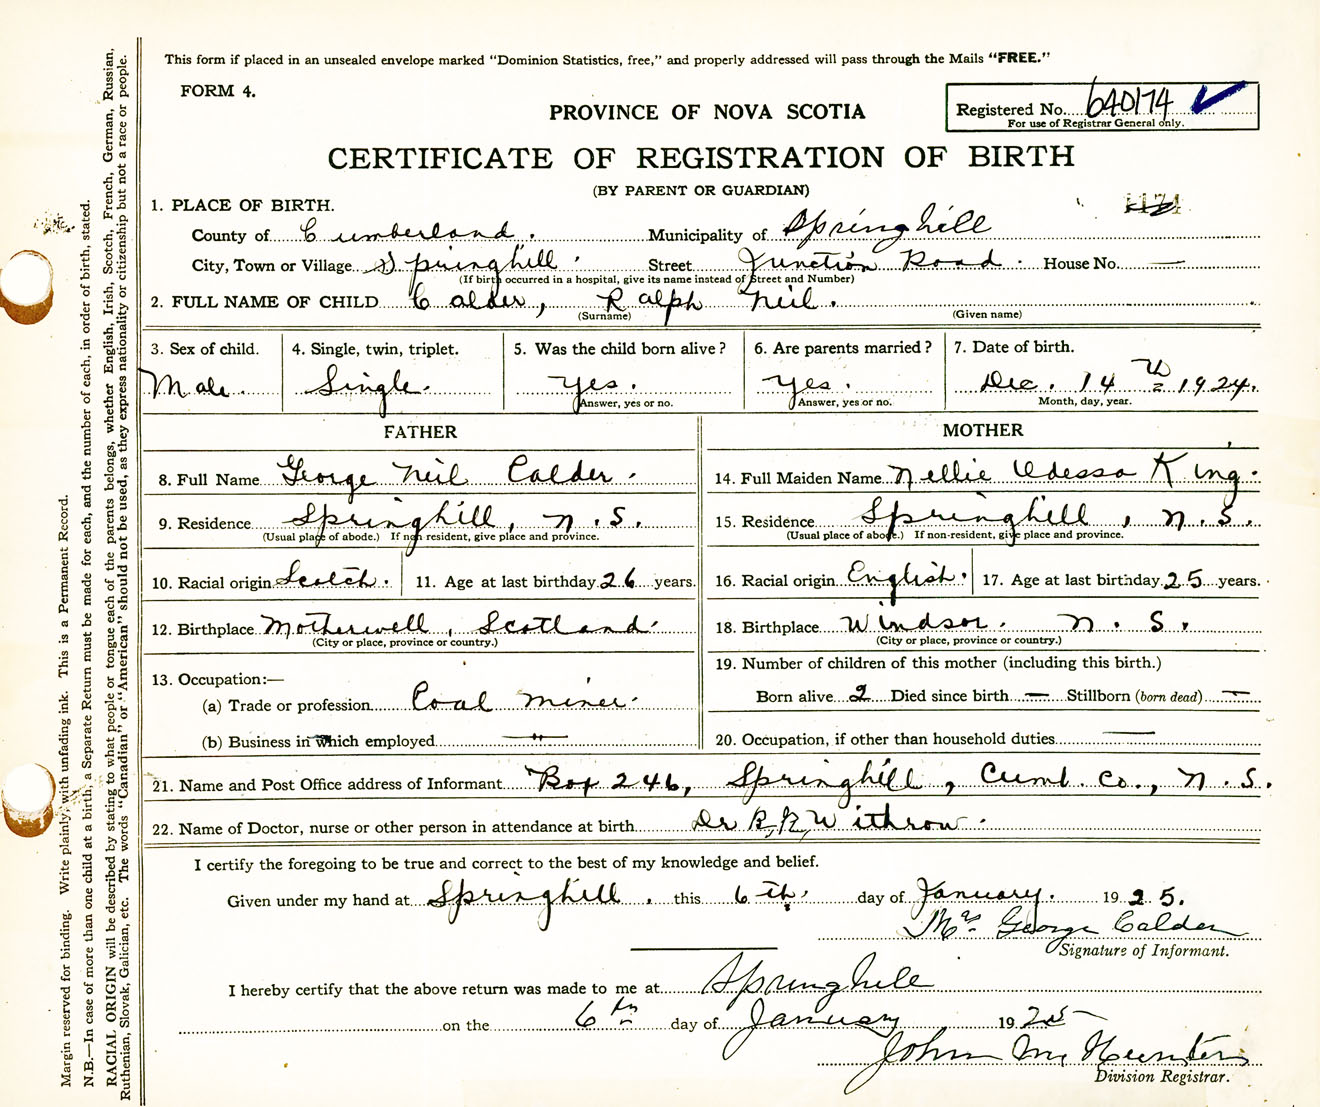 This form if placed in an unsealed envelope marked "Dominion Statistics, free," and properly addressed will pass through the Mails "FREE."
FORM 4.
PROVINCE OF NOVA SCOTIA
Registered No. 640174
For use of Registrar General only.
CERTIFICATE OF REGISTRATION OF BIRTH
(BY PARENT OR GUARDIAN)
1. PLACE OF BIRTH.
County of Cumberland. Municipality of Springhill
City, Town or Village Springhill. Street Junction Road. House No. —
(If birth occurred in a hospital, give its name instead of Street and Number)
2. FULL NAME OF CHILD Calder, Ralph Neil.
(Surname) (Given name)
3. Sex of child. 4. Single, twin, triplet. 5. Was the child born alive? 6. Are parents married? 7. Date of birth.
Male. Single. Yes. Yes. Dec. 14th 1924.
Answer, yes or no. Answer, yes or no. Month, day, year.
FATHER MOTHER
8. Full Name George Neil Calder. 14. Full Maiden Name Nellie Odessa King.
9. Residence Springhill, N.S. 15. Residence Springhill, N.S.
(Usual place of abode.) If non resident, give place and province. (Usual place of abode.) If non-resident, give place and province.
10. Racial origin Scotch. 11. Age at last birthday 26 years. 16. Racial origin English. 17. Age at last birthday 25 years.
12. Birthplace Motherwell, Scotland. 18. Birthplace Windsor. N.S.
(City or place, province or country.) (City or place, province or country.)
13. Occupation:— 19. Number of children of this mother (including this birth.)
(a) Trade or profession Coal Miner. Born alive 2 Died since birth — Stillborn (born dead) —
(b) Business in which employed — 20. Occupation, if other than household duties —
21. Name and Post Office address of Informant Box 246, Springhill, Cumb. Co., N.S.
22. Name of Doctor, nurse or other person in attendance at birth Dr R, R, Withrow.
I certify the foregoing to be true and correct to the best of my knowledge and belief.
Given under my hand at Springhill, this 6th. day of January. 1925.
Mrs. George Calder
Signature of Informant.
I hereby certify that the above return was made to me at Springhill
on the 6th day of January 1925
John
Division Registrar.
Margin reserved for binding. Write plainly, with unfading ink. This is a Permanent Record.
N.B.—In case of more than one child at a birth, a Separate Return must be made for each, and the number of each, in order of birth, stated.
RACIAL ORIGIN will be described by stating to what people or tongue each of the parents belongs, whether English, Irish, Scotch, French, German, Russian,
Ruthenian, Slovak, Galician, etc. The words "Canadian" or "American" should not be used, as they express nationality or citizenship but not a race or people.